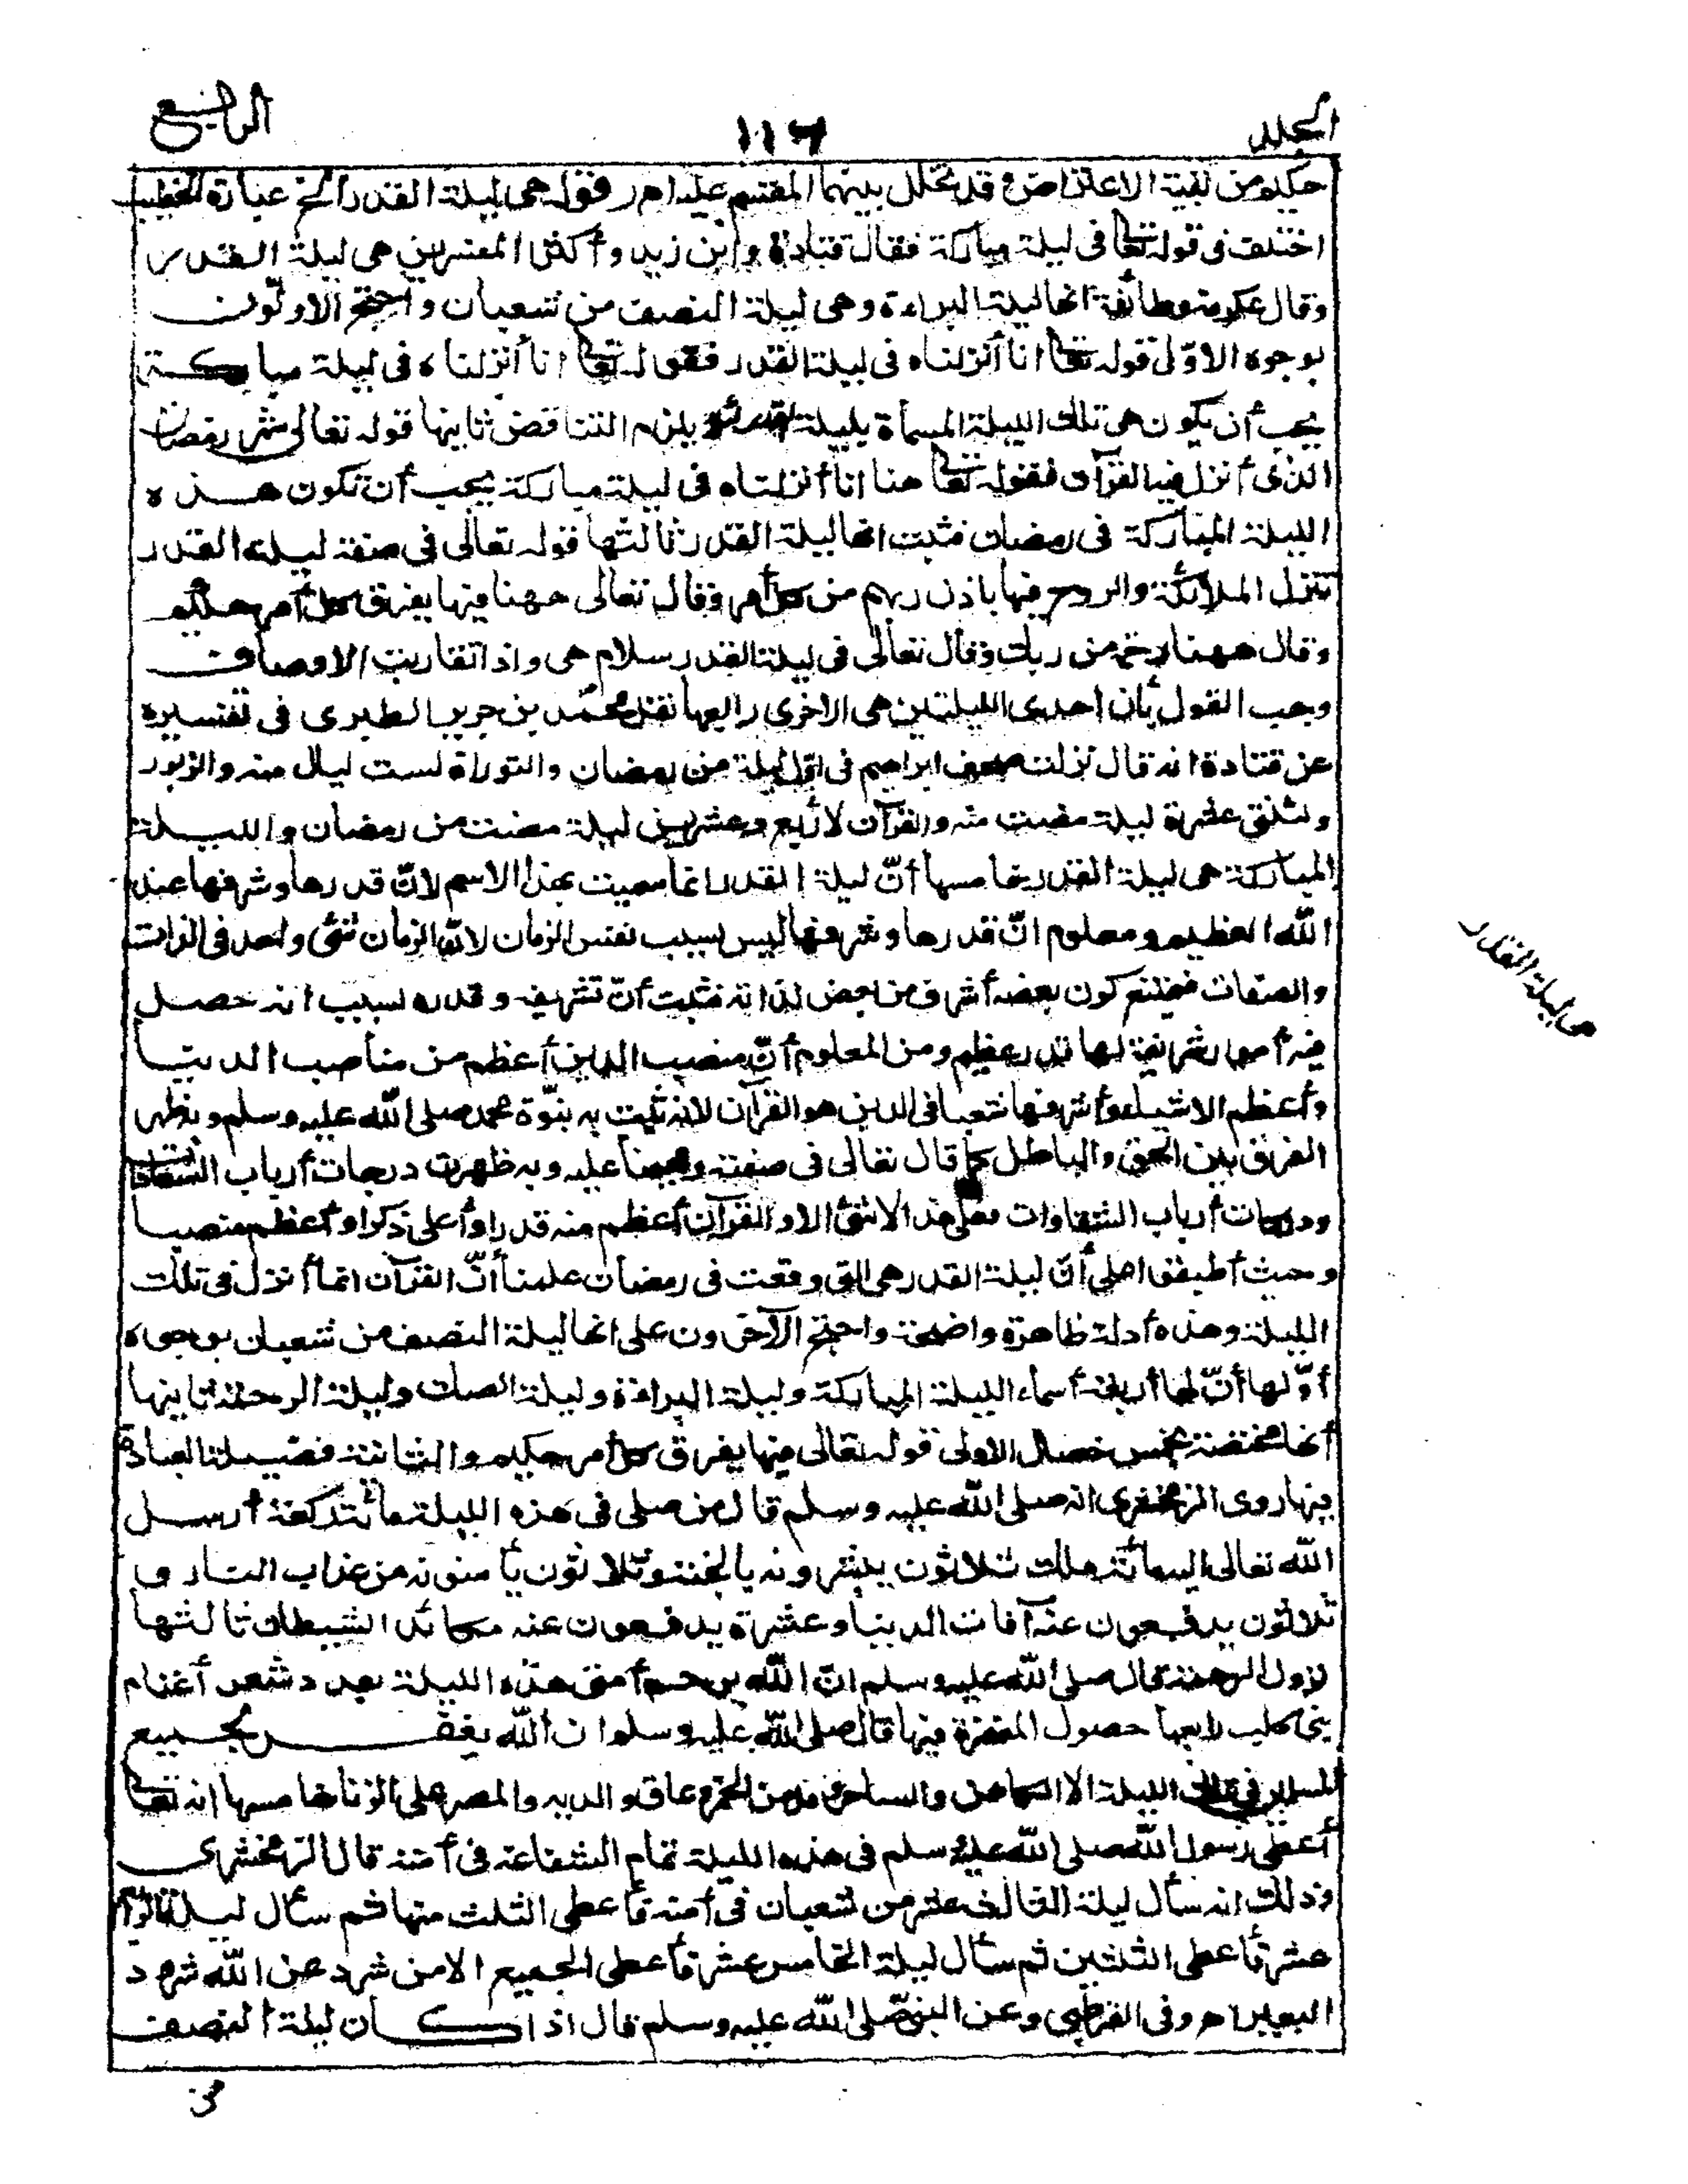 المجلد ١١٦ الرابع
حكيم من بقية الاعتراض وقد تخلل بينهما المقسم عليه اهـ ر قوله هى ليلة القدر الخ عبارة الخطيب
اختلف فى قوله تعا فى ليلة مباركة فقال قتادة وابن زيد وأكثر المفسرين هى ليلة القدر
وقال عكرمة وطائفة انها ليلة البراءة وهى ليلة النصف من شعبان واحتج الاولون
بوجوه الاوّلى قوله تعا انا أنزلناه فى ليلة القدر فقوله تعا انا أنزلناه فى ليلة مباركة
يجب أن يكون هى تلك الليلة المسمأة بليلة القدر لئلا يلزم التناقض ثانيها قوله تعالى شهر رمضان
الذى أنزل فيه القرآن فقوله تعا هنا انا أنزلناه فى ليلة مباركة يجب أن تكون هذه
الليلة المباركة فى رمضان فثبت انها ليلة القدر ثالثها قوله تعالى فى صفة ليلة القدر
تنزل الملائكة والروح فيها باذن ربهم من كل أمر وقال تعالى ههنا فيها يفرق كل أمر حكيم
وقال ههنا رحمة من ربك وقال تعالى فى ليلة القدر سلام هى واذا تقاربت الاوصاف
وجب القول بأن احدى الليلتين هى الاخرى رابعها نقل محمد بن جرير الطبرى فى تفسيره
عن قتادة انه قال نزلت صحف ابراهيم فى اوّل ليلة من رمضان والتوراة لست ليال منه والزبور
ولثلتى عشرة ليلة مضت منه والقرآن لأربع وعشرين ليلة مضت من رمضان والليلة
المباركة هى ليلة القدر خامسها أنّ ليلة القدر انما سميت بهذا الاسم لانّ قدرها وشرفها عند
الله العظيم ومعلوم انّ قدرها وشرفها ليس بسبب نفس الزمان لانّ الزمان شئ واحد فى الذات
والصفات فيمتنع كون بعضه أشرف من بعض لذاته فثبت أنّ تشريفه وقدره بسبب انه حصل
فيه أمور شريفة لها قدر عظيم ومن المعلوم أنّ منصب الدين أعظم من مناصب الدنيا
وأعظم الاشياء وأشرفها منصبا فى الدين هو القرآن لانه ثبت به نبوّة محمد صلى الله عليه وسلم وبه ظهر
الفرق بين الحق والباطل كما قال تعالى فى صفته ومهيمنا عليه وبه ظهرت درجات أرباب السعادات
ودركات أرباب الشقاوات فعلى هذا لا شئ الا والقرآن أعظم منه قدرا وأعلى ذكرا وأعظم منصبا
وحيث أطبقوا على أنّ ليلة القدر هى التى وقعت فى رمضان علمنا أنّ القرآن انما أنزل فى تلك
الليلة وهذه أدلة ظاهرة واضحة واحتج الآخرون على انها ليلة النصف من شعبان بوجوه
أوّلها أنّ لها أربعة أسماء الليلة المباركة وليلة البراءة وليلة الصك وليلة الرحمة ثانيها
أنها مختصة بخمس خصال الاولى قوله تعالى فيها يفرق كل أمر حكيم والثانية فضيلة العبادة
فيها روى الزمخشرى انه صلى الله عليه وسلم قال من صلى فى هذه الليلة مائة ركعة أرسل
الله تعالى اليه مائة ملك ثلاثون يبشرونه بالجنة وثلاثون يأمنونه من عذاب النار و
ثلاثون يدفعون عنه آفات الدنيا وعشرة يدفعون عنه مكائد الشيطان ثالثها
نزول الرحمة قال صلى الله عليه وسلم انّ الله يرحم أمتى هذه الليلة بعدد شعر أغنام
بنى كلب رابعها حصول المغفرة فيها قال صلى الله عليه وسلم ان الله يغفر لجميع
المسلمين فى تلك الليلة الا الكاهن والساحر ومدمن الخمر وعاق والديه والمصر على الزنا خامسها انه تعا
أعطى رسول الله صلى الله عليه وسلم فى هذه الليلة تمام الشفاعة فى أمته قال الزمخشرى
وذلك انه سأل ليلة الثالث عشر من شعبان فى أمته فأعطى الثلث منها ثم سأل ليلة الرابع
عشر فأعطى الثلثين ثم سأل ليلة الخامس عشر فأعطى الجميع الا من شرد عن الله شرد
البعير اهـ وفى القرطبى وعن النبى صلى الله عليه وسلم قال اذا كان ليلة النصف
من
هى ليلة القدر